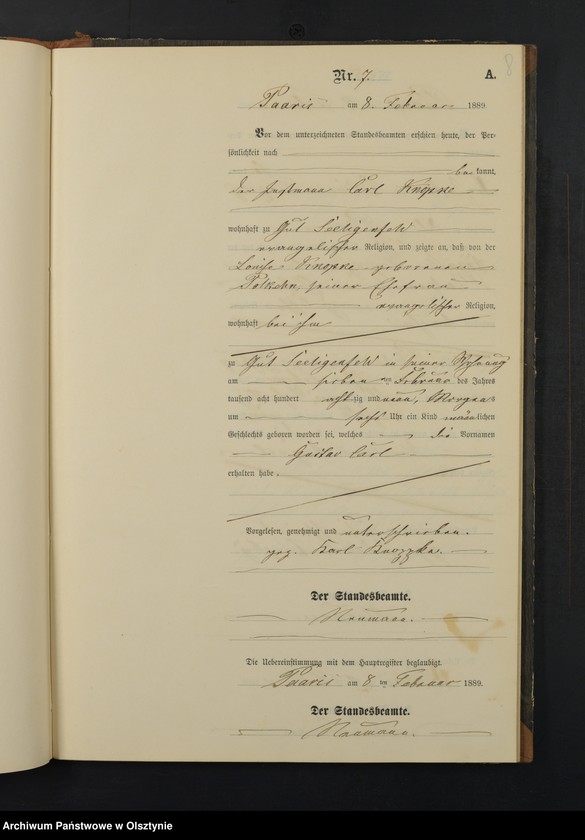 8
Nr. 7. A.
Paaris am 8. Februar 1889.
Vor dem unterzeichneten Standesbeamten erschien heute, der Per-
sönlichkeit nach
be kannt,
der Instmann Carl Knöpke
wohnhaft zu Gut Seeligenfeld
evangelischer Religion, und zeigte an, daß von der
Louise Knopke geborenen
seiner Ehefrau
evangelischer Religion,
wohnhaft bei ihm
zu Gut Seeligenfeld in seiner Wohnung
am sieben ten Februar des Jahres
tausend acht hundert acht zig und neun, Morgens
um sechs Uhr ein Kind männlichen
Geschlechts geboren worden sei, welches die Vornamen
Gustav Carl
erhalten habe.
Vorgelesen, genehmigt und unterschrieben.
gez. Karl
Der Standesbeamte.
Naumann.
Die Uebereinstimmung mit dem Hauptregister beglaubigt.
Paaris am 8 ten Februar 1889.
Der Standesbeamte.
Naumann.
Archiwum Państwowe w Olsztynie